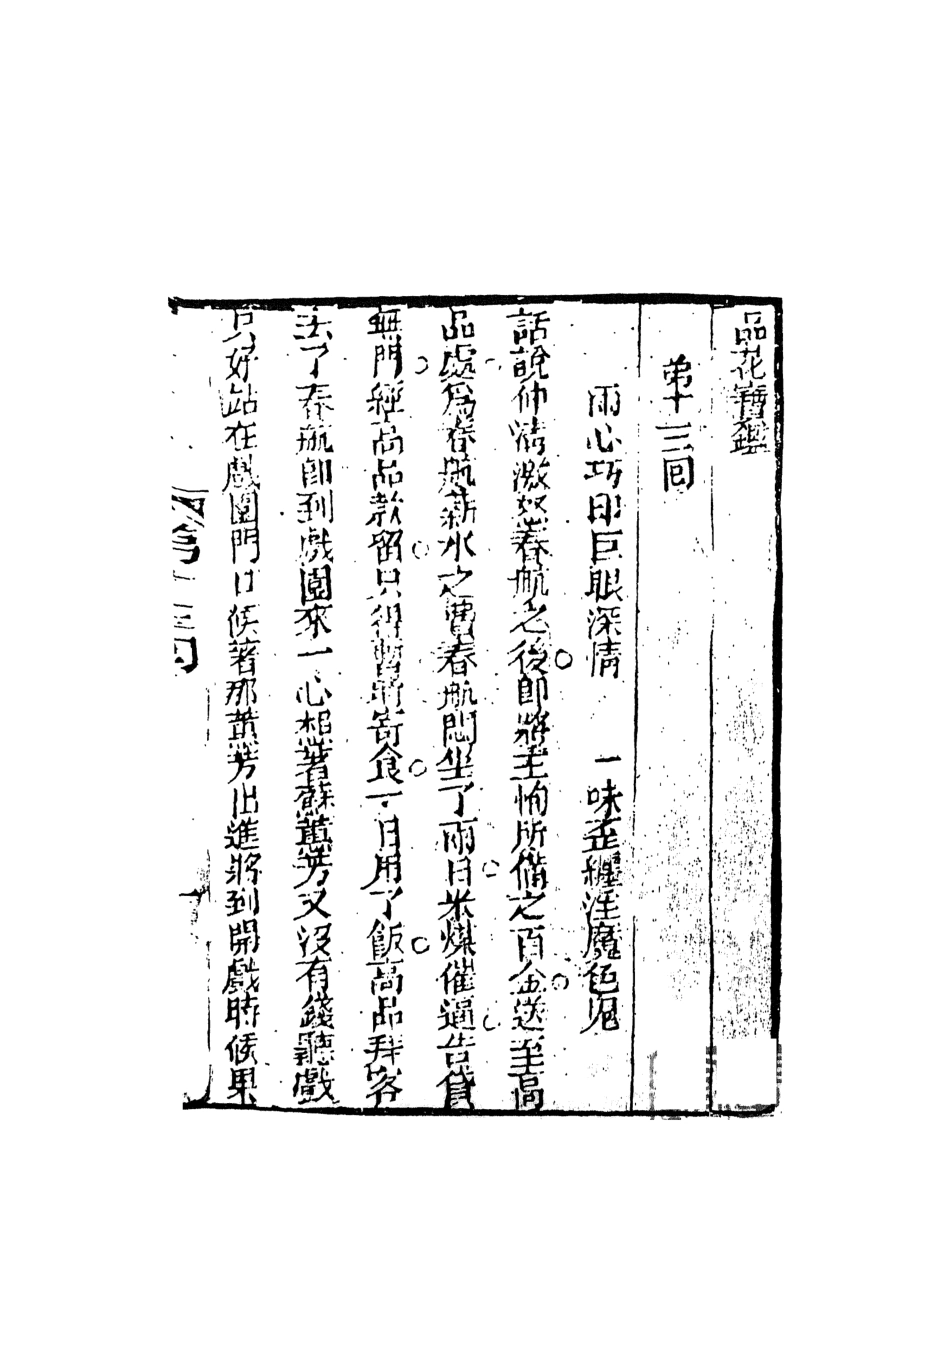 品花寶鑑
弟十三回
兩心巧印巨眼深情　一味歪纏淫魔色鬼
話說仲清激怒春航之後即將王恂所備之百金送至高
品處為春航薪水之費春航悶坐了兩日米煤催逼告貸
無門經高品款留只得暫時寄食一日用了飯高品拜客
去了春航即到戲園來一心想著蘇蕙芳又沒有錢聽戲
只好站在戲園門口候著那蕙芳出進將到開戲時候果
第十三回